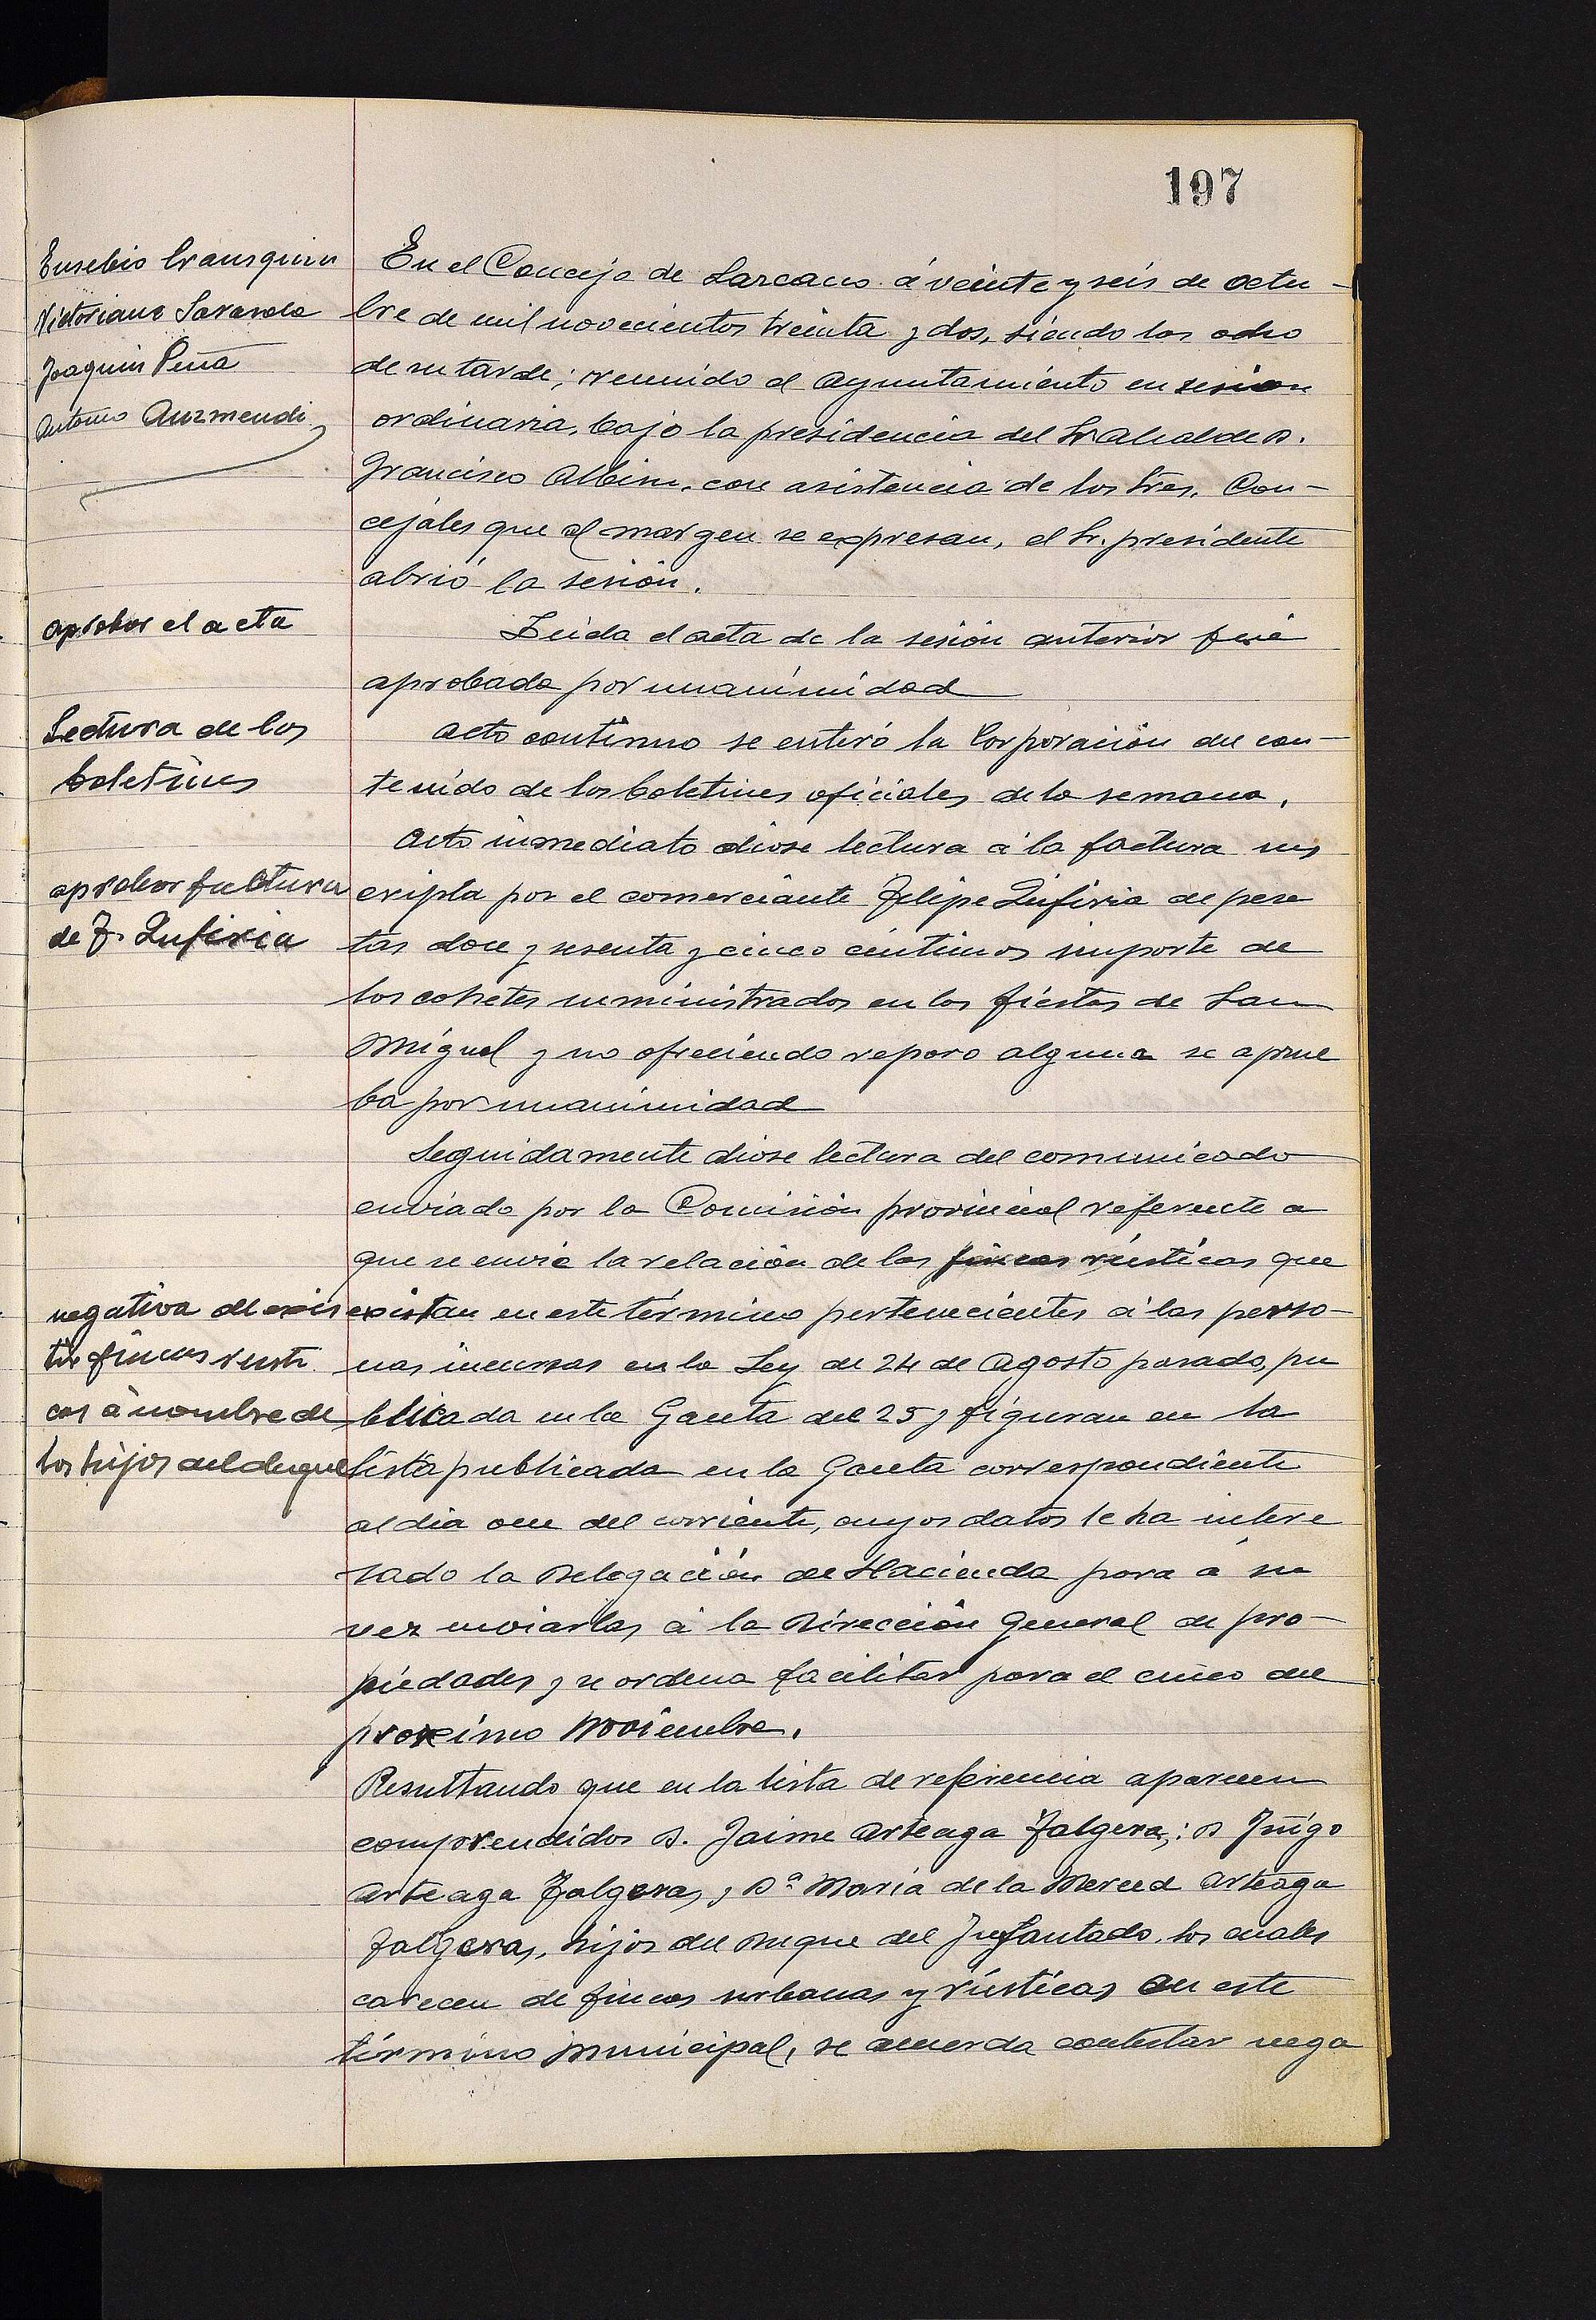 197
Eusebio Irausquin
Victoriano Sarasola
Joaquin Peña
Antonio Auzmendi
En el Concejo de Lazcano á veinte y seis de octu-
bre de mil novecientos treinta y dos, siendo las ocho
de su tarde; reunido el Ayuntamiento en sesion
ordinaria, bajo la presidencia del Sr Alcalde D.
Francisco Albisu, con asistencia de los Sres. Con-
cejales que al margen se expresan, el Sr. presidente
abrió la sesión.
aprobar el acta
Leida el acta de la sesión anterior fué
aprobada por unanimidad
Lectura de los
boletines
Acto continuo se enteró la Corporación del con-
tenido de los boletines oficiales de la semana.
aprobar factura
de F. Zufiria
Acto inmediato diose lectura á la factura sus
cripta por el comerciante Felipe Zufiria de pese
tas doce y sesenta y cinco céntimos importe de
los cohetes suministrados en las fiestas de San
Miguel y no ofreciendo reparo alguna se aprue
ba por unanimidad
Seguidamente diose lectura del comunicado
enviado por la Comisión provincial referente a
que se envie la relación de las fincas rústicas que
negativa del exis
tir fincas rusti
cas á nombre de
los hijos del duque
existan en este término pertenecientes á las perso-
nas incursas en la Ley de 24 de Agosto pasado, pu
blicada en la Gaceta del 25 y figuran en la
lista publicada en la Gaceta correspondiente
al dia once del corriente, cuyos datos le ha intere
sado la Delegación de Hacienda para á su
vez enviarlas á la Dirección General de pro-
piedades y se ordena facilitar para el cinco del
proximo Noviembre.
Resultando que en la lista de referencia aparecen
comprendidos D. Jaime Arteaga Falgera; D Iñigo
Arteaga Falgera, y Dª Maria de la Merced Arteaga
Falgera, hijos del Duque del Infantado, los cuales
carecen de fincas urbanas y rústicas en este
término municipal, se acuerda contestar nega